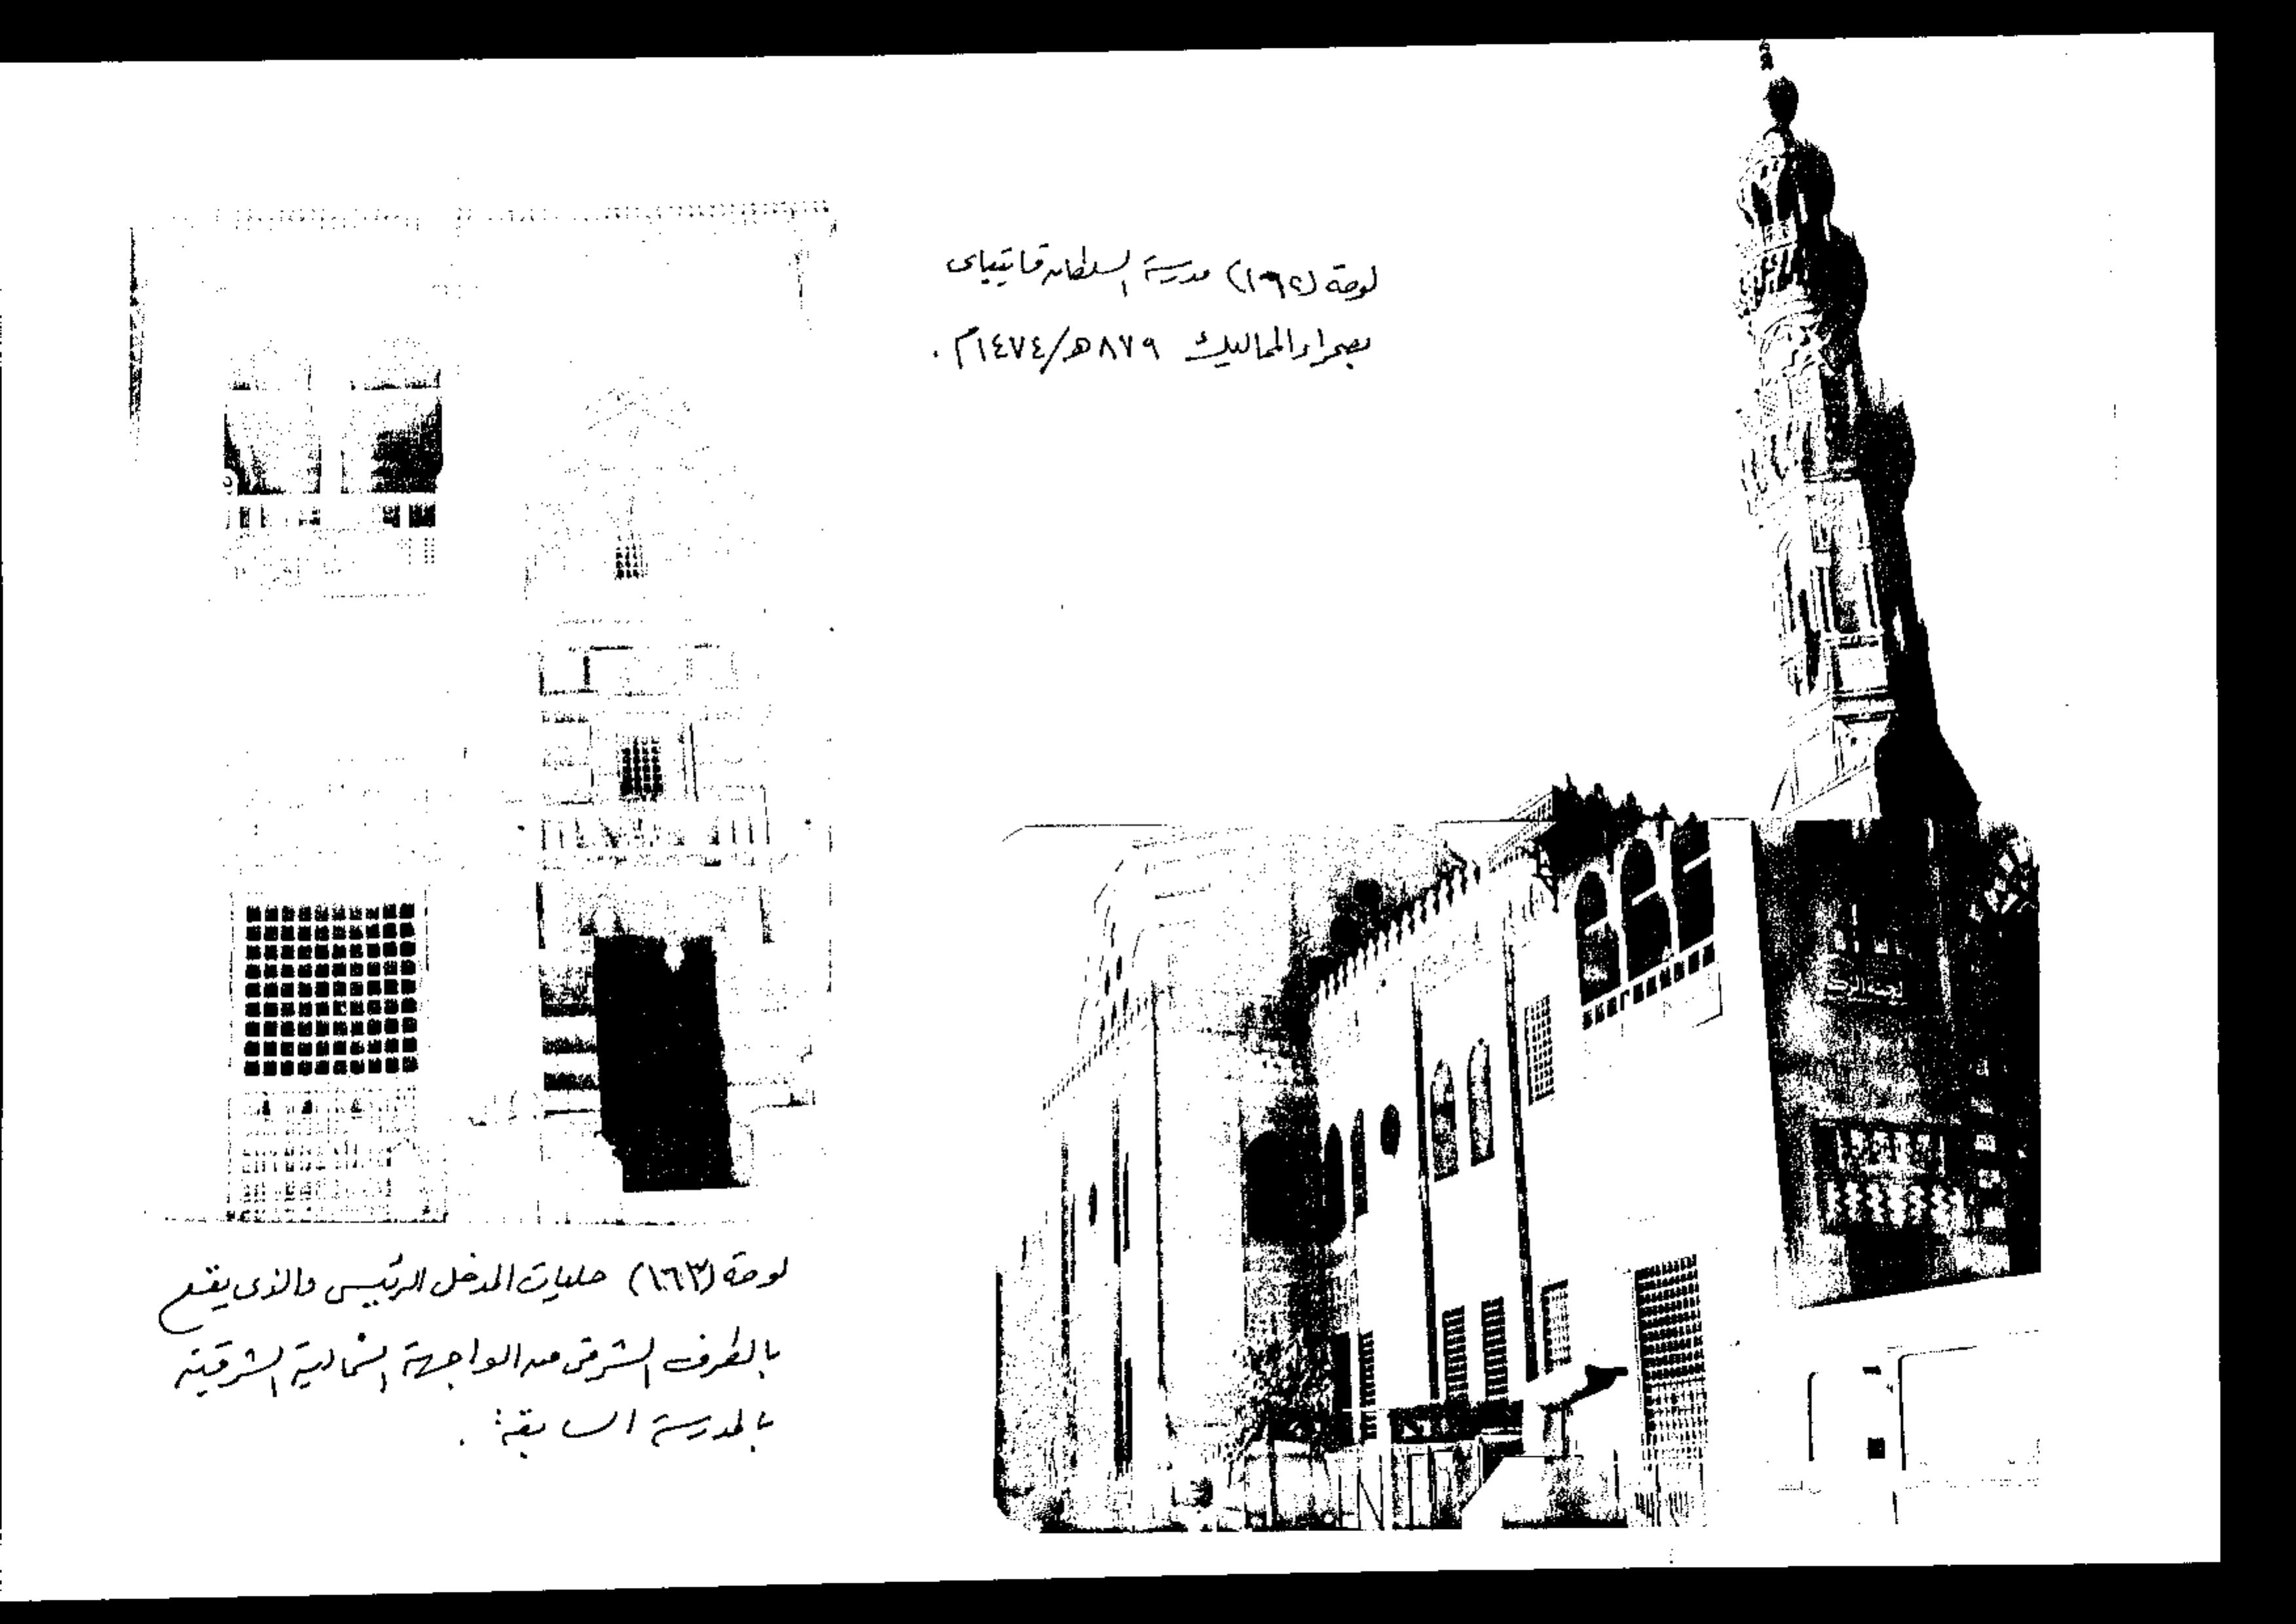 لوحة (١٦٢) مدرسة السلطان قايتباى
بصحراء المماليك ٨٧٩ هـ/١٤٧٤م.
لوحة (١٦٣) حليات المدخل الرئيسى والذى يقع
بالطرف الشرقى من الواجهة الشمالية الشرقية
بالمدرسة السابقة.